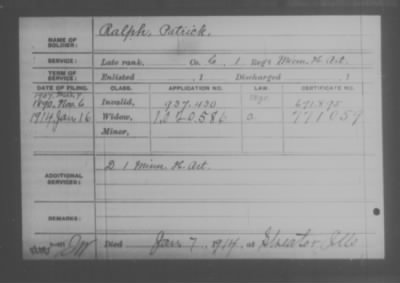 NAME OF SOLDIER: Ralph, Patrick.
SERVICE: Late rank, Co. C, 1 Reg't Minn. H. Art.
TERM OF SERVICE: Enlisted , 1 Discharged , 1
DATE OF FILING. CLASS. APPLICATION NO. LAW. CERTIFICATE NO.
1890, Nov. 6 Invalid, 937.430 671.895
1914, Jan. 16 Widow, 1.020.586 771059
Minor,
ADDITIONAL SERVICES: D 1 Minn. H. Art.
REMARKS:
Died Jan 7, 1914, at Streator, Ills